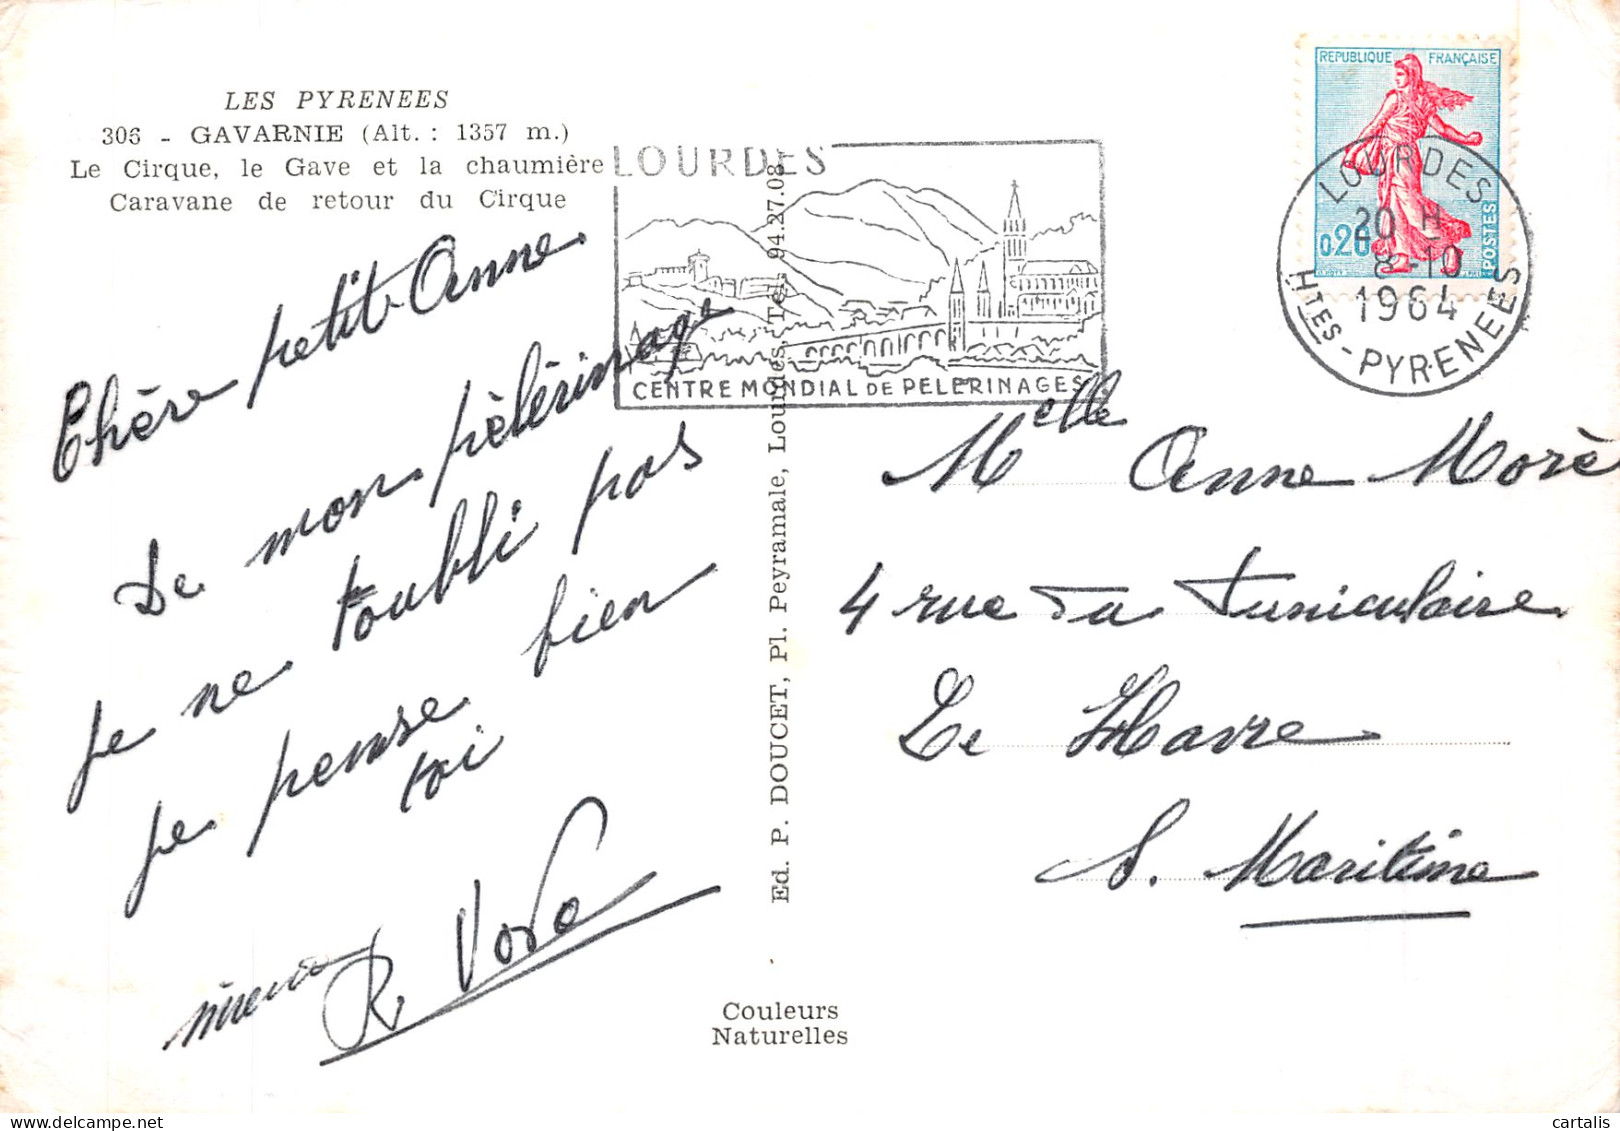 LES PYRENEES
306 - GAVARNIE (Alt. : 1357 m.)
Le Cirque, le Gave et la chaumière
Caravane de retour du Cirque
LOURDES
CENTRE MONDIAL DE PELERINAGES
REPUBLIQUE FRANÇAISE
0,20
POSTES
LOURDES
20 H
8-10
1964
HTES-PYRENEES
Chère petit Anne
De mon pèlérinage
je ne toubli pas
je pense bien
toi
R.
Ed. P. DOUCET, Pl. Peyramale, Lourdes, Tel. 94.27.08
Melle Anne Morè
4 rue du Funiculaire
Le Havre
S. Maritime
Couleurs
Naturelles
cartalis - delcampe.net